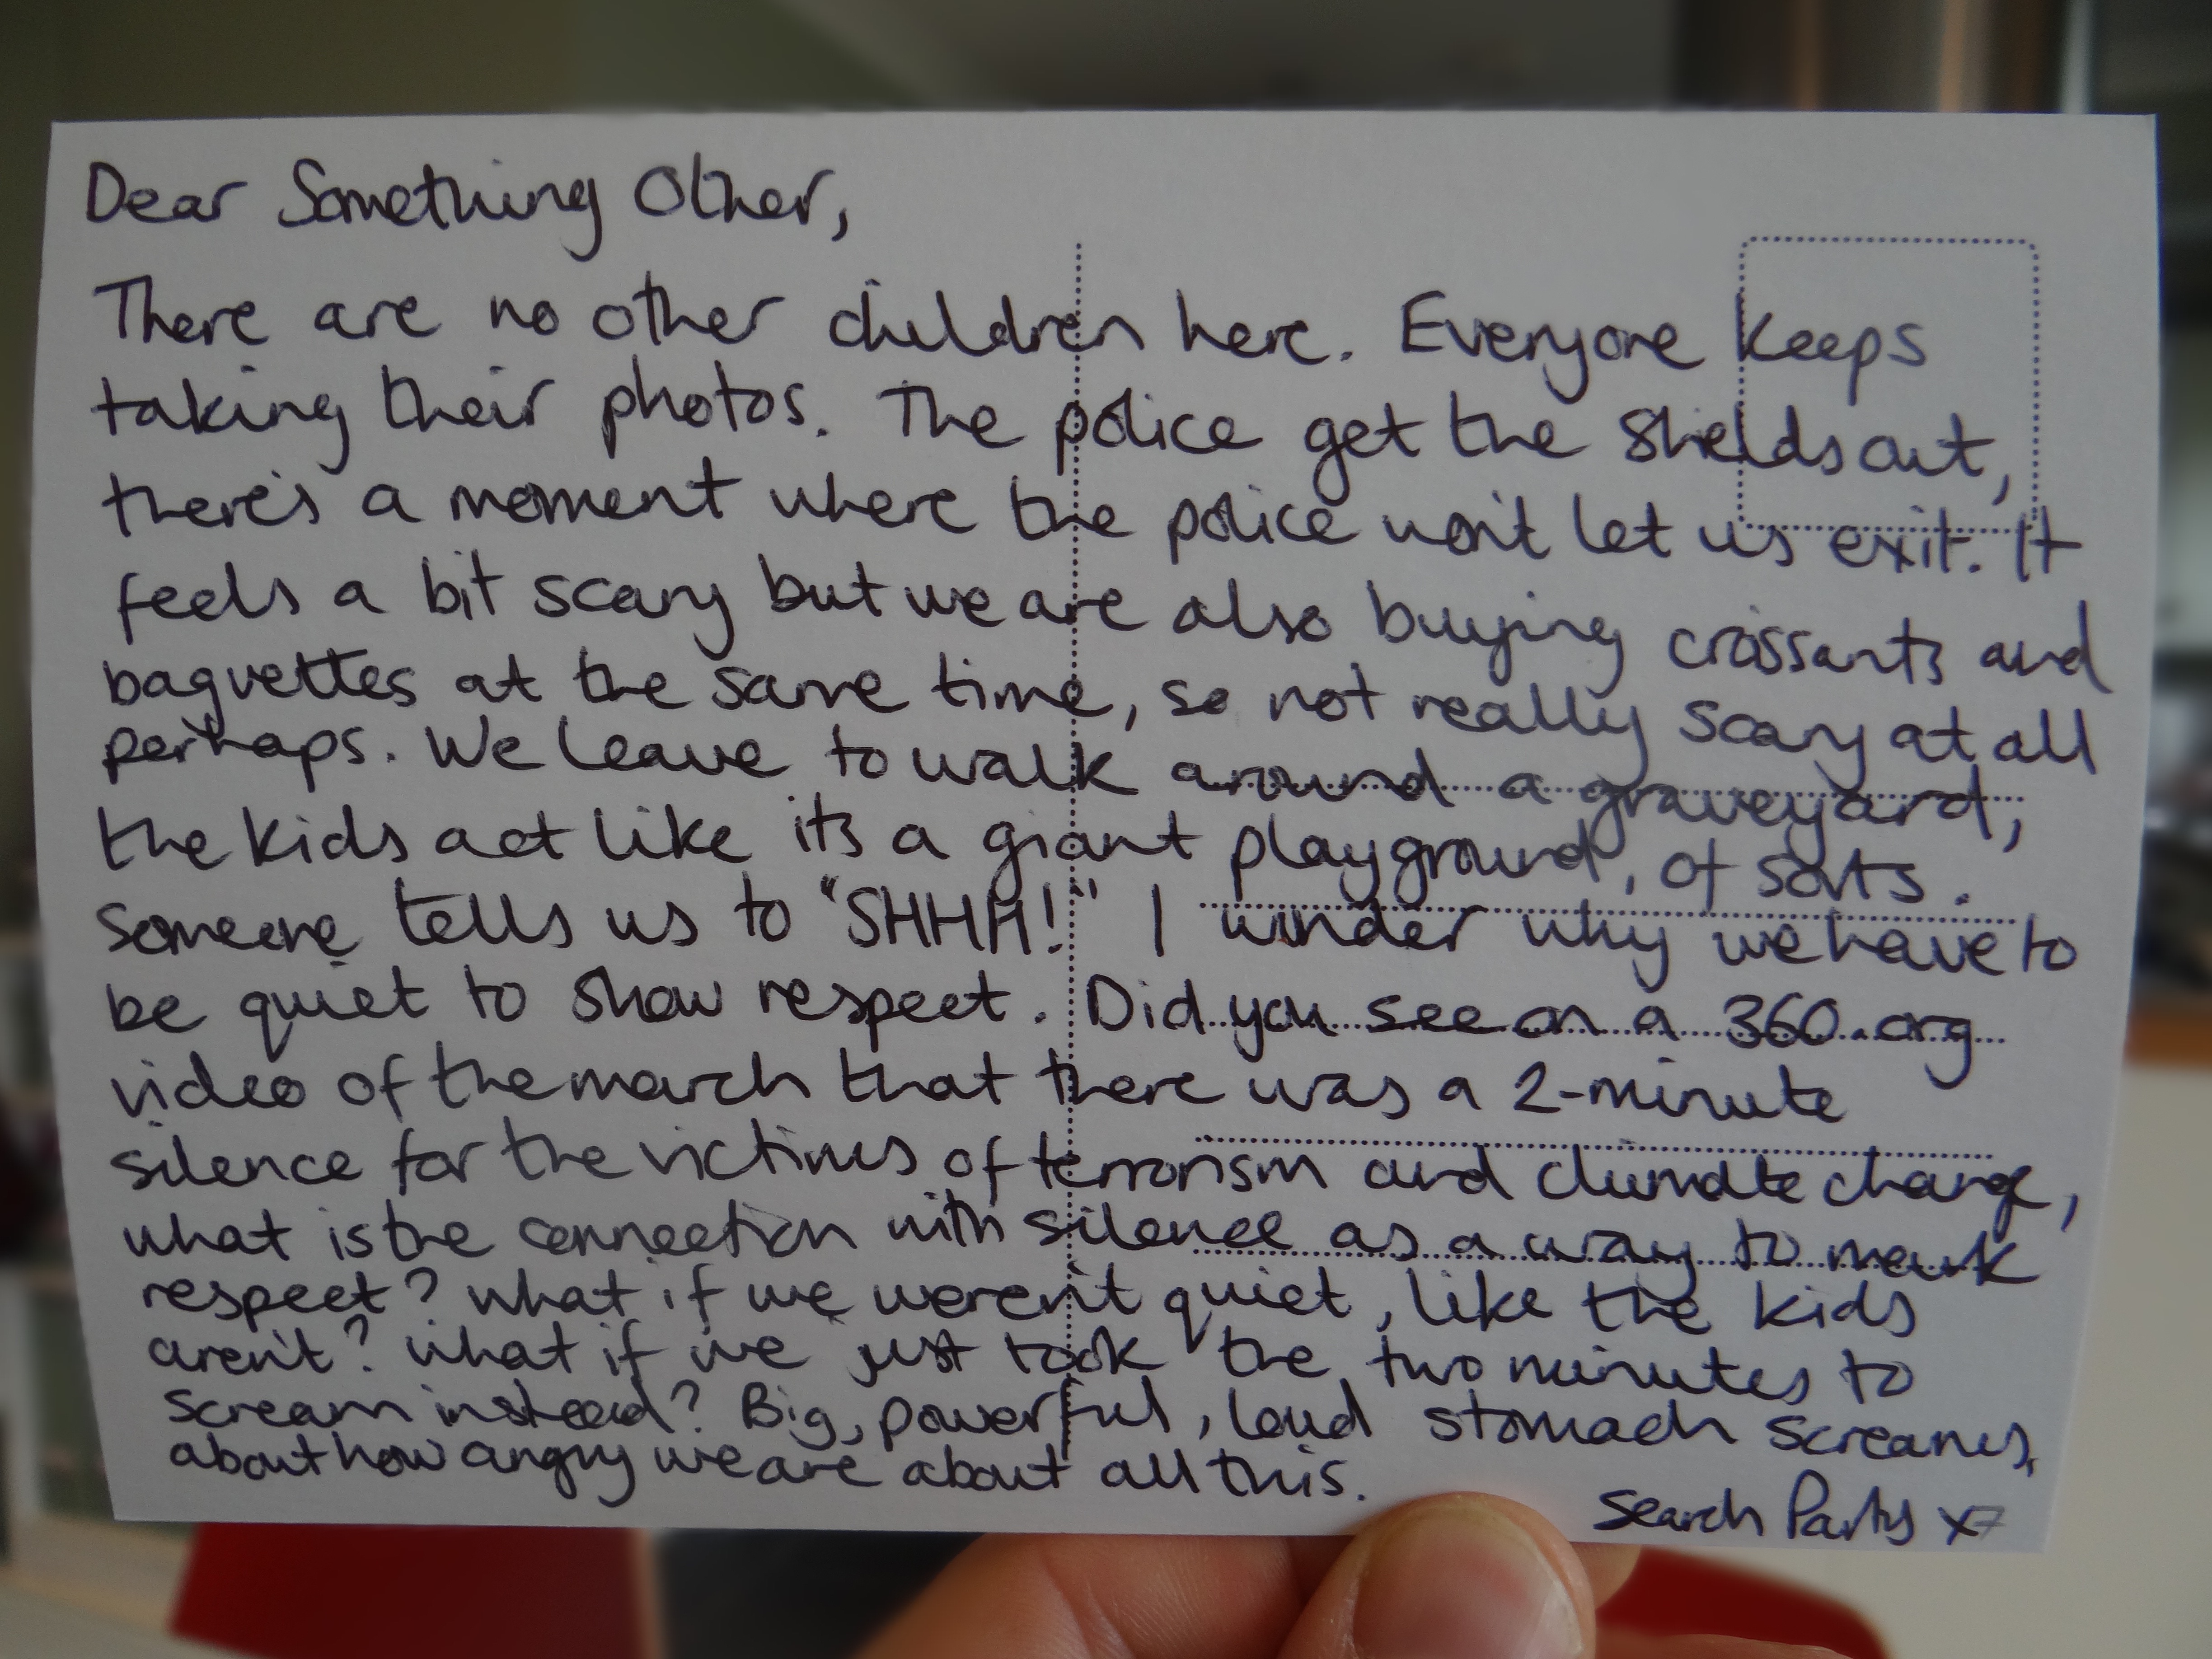 Dear Something Other,
There are no other children here. Everyone keeps
taking their photos. The police get the shields out,
there's a moment where the police won't let us exit. It
feels a bit scary but we are also buying croissants and
baguettes at the same time, so not really scary at all
perhaps. We leave to walk around a graveyard,
the kids act like its a giant playground, of sorts.
Someone tells us to "SHHH!" I wonder why we have to
be quiet to show respect. Did you see on a 360.org
video of the march that there was a 2-minute
silence for the victims of terrorism and climate change,
what is the connection with silence as a way to mark
respect? What if we weren't quiet, like the kids
aren't? What if we just took the two minutes to
scream instead? Big, powerful, loud stomach screams,
about how angry we are about all this.
Search Party x